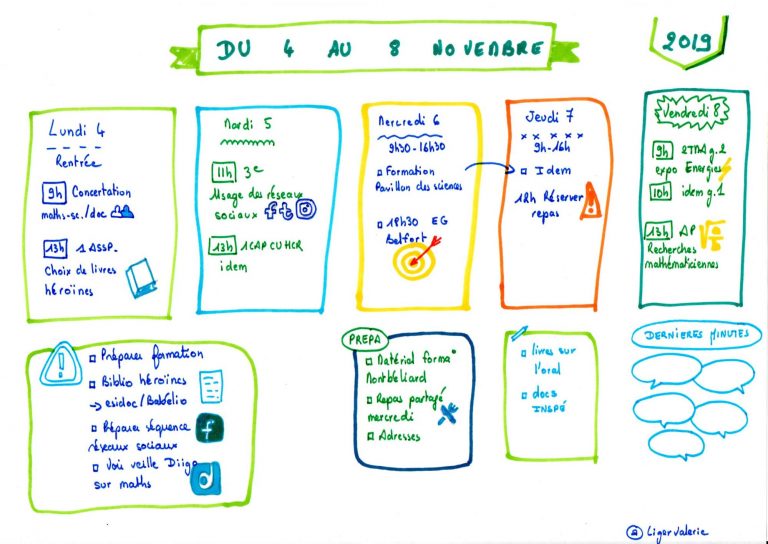 DU 4 AU 8 NOVENBRE
2019
Lundi 4
Rentrée
9h Concertation
maths-sc./doc
13h 1 ASSP.
Choix de livres
héroïnes
Mardi 5
11h 3e
Usage des réseaux
sociaux
13h 1CAP CUHCR
idem
Mercredi 6
9h30-16h30
Formation
Pavillon des sciences
18h30 EG
Belfort
Jeudi 7
9h-16h
Idem
12h Réserver
repas
Vendredi 8
9h 2TMA g.2
expo Energies
10h idem g.1
13h AP
Recherches
mathématiciennes
Préparer formation
Biblio héroïnes
→ esidoc/Babélio
Préparer séquence
réseaux sociaux
Voir veille Diigo
sur maths
PREPA
Matérial forma°
Montbéliard
Repas partagé
mercredi
Adresses
livres sur
l'oral
docs
INSPÉ
DERNIERES MINUTES
Liger Valerie